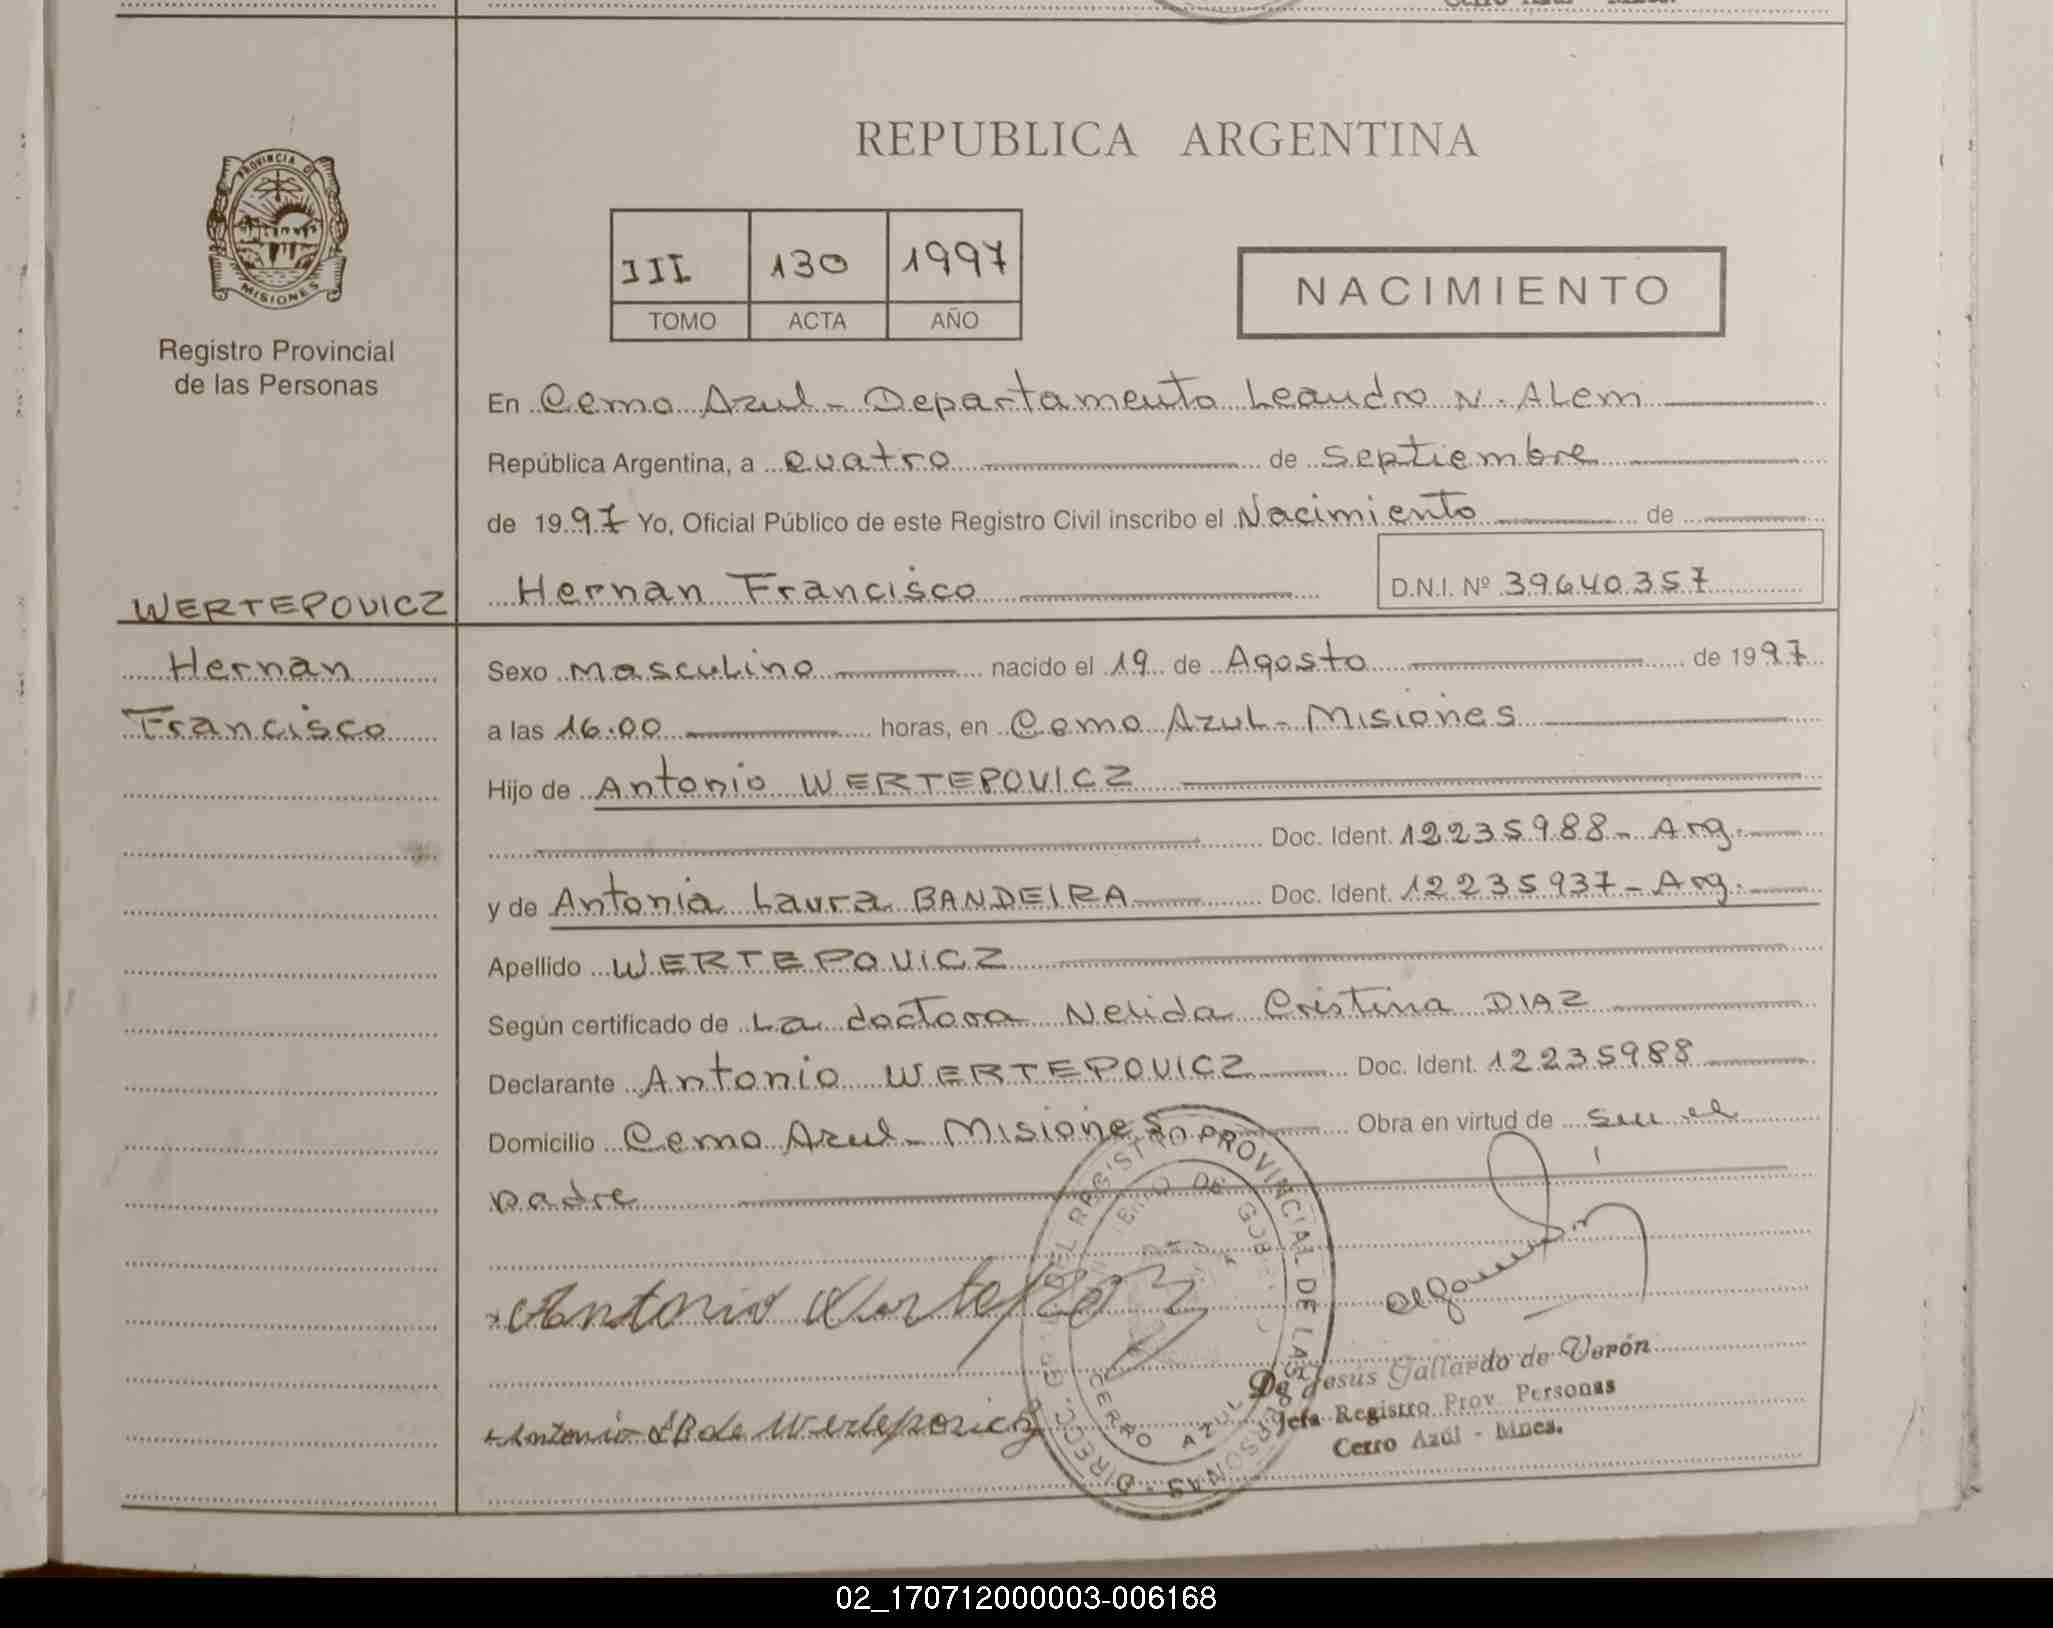 REPUBLICA ARGENTINA
PROVINCIA DE
MISIONES
Registro Provincial
de las Personas
III 130 1997
TOMO ACTA AÑO
NACIMIENTO
En Cerro Azul - Departamento Leandro N. Alem
República Argentina, a cuatro de septiembre
de 1997 Yo, Oficial Público de este Registro Civil inscribo el Nacimiento de
Hernan Francisco D.N.I. Nº 39640357
WERTEPOVICZ
Hernan
Francisco
Sexo Masculino nacido el 19 de Agosto de 1997
a las 16.00 horas, en Cerro Azul - Misiones
Hijo de Antonio WERTEPOVICZ
Doc. Ident. 12235988 - Arg.
y de Antonia Laura BANDEIRA Doc. Ident. 12235937 - Arg.
Apellido WERTEPOVICZ
Según certificado de La doctora Nelida Cristina DIAZ
Declarante Antonio WERTEPOVICZ Doc. Ident. 12235988
Domicilio Cerro Azul - Misiones Obra en virtud de ser el
padre
REGISTRO PROVINCIAL DE LAS PERSONAS
CERRO AZUL
Antonio
de Jesús Gallardo de Verón
Jefa Registro Prov. Personas
Cerro Azúl - Mnes.
02_170712000003-006168